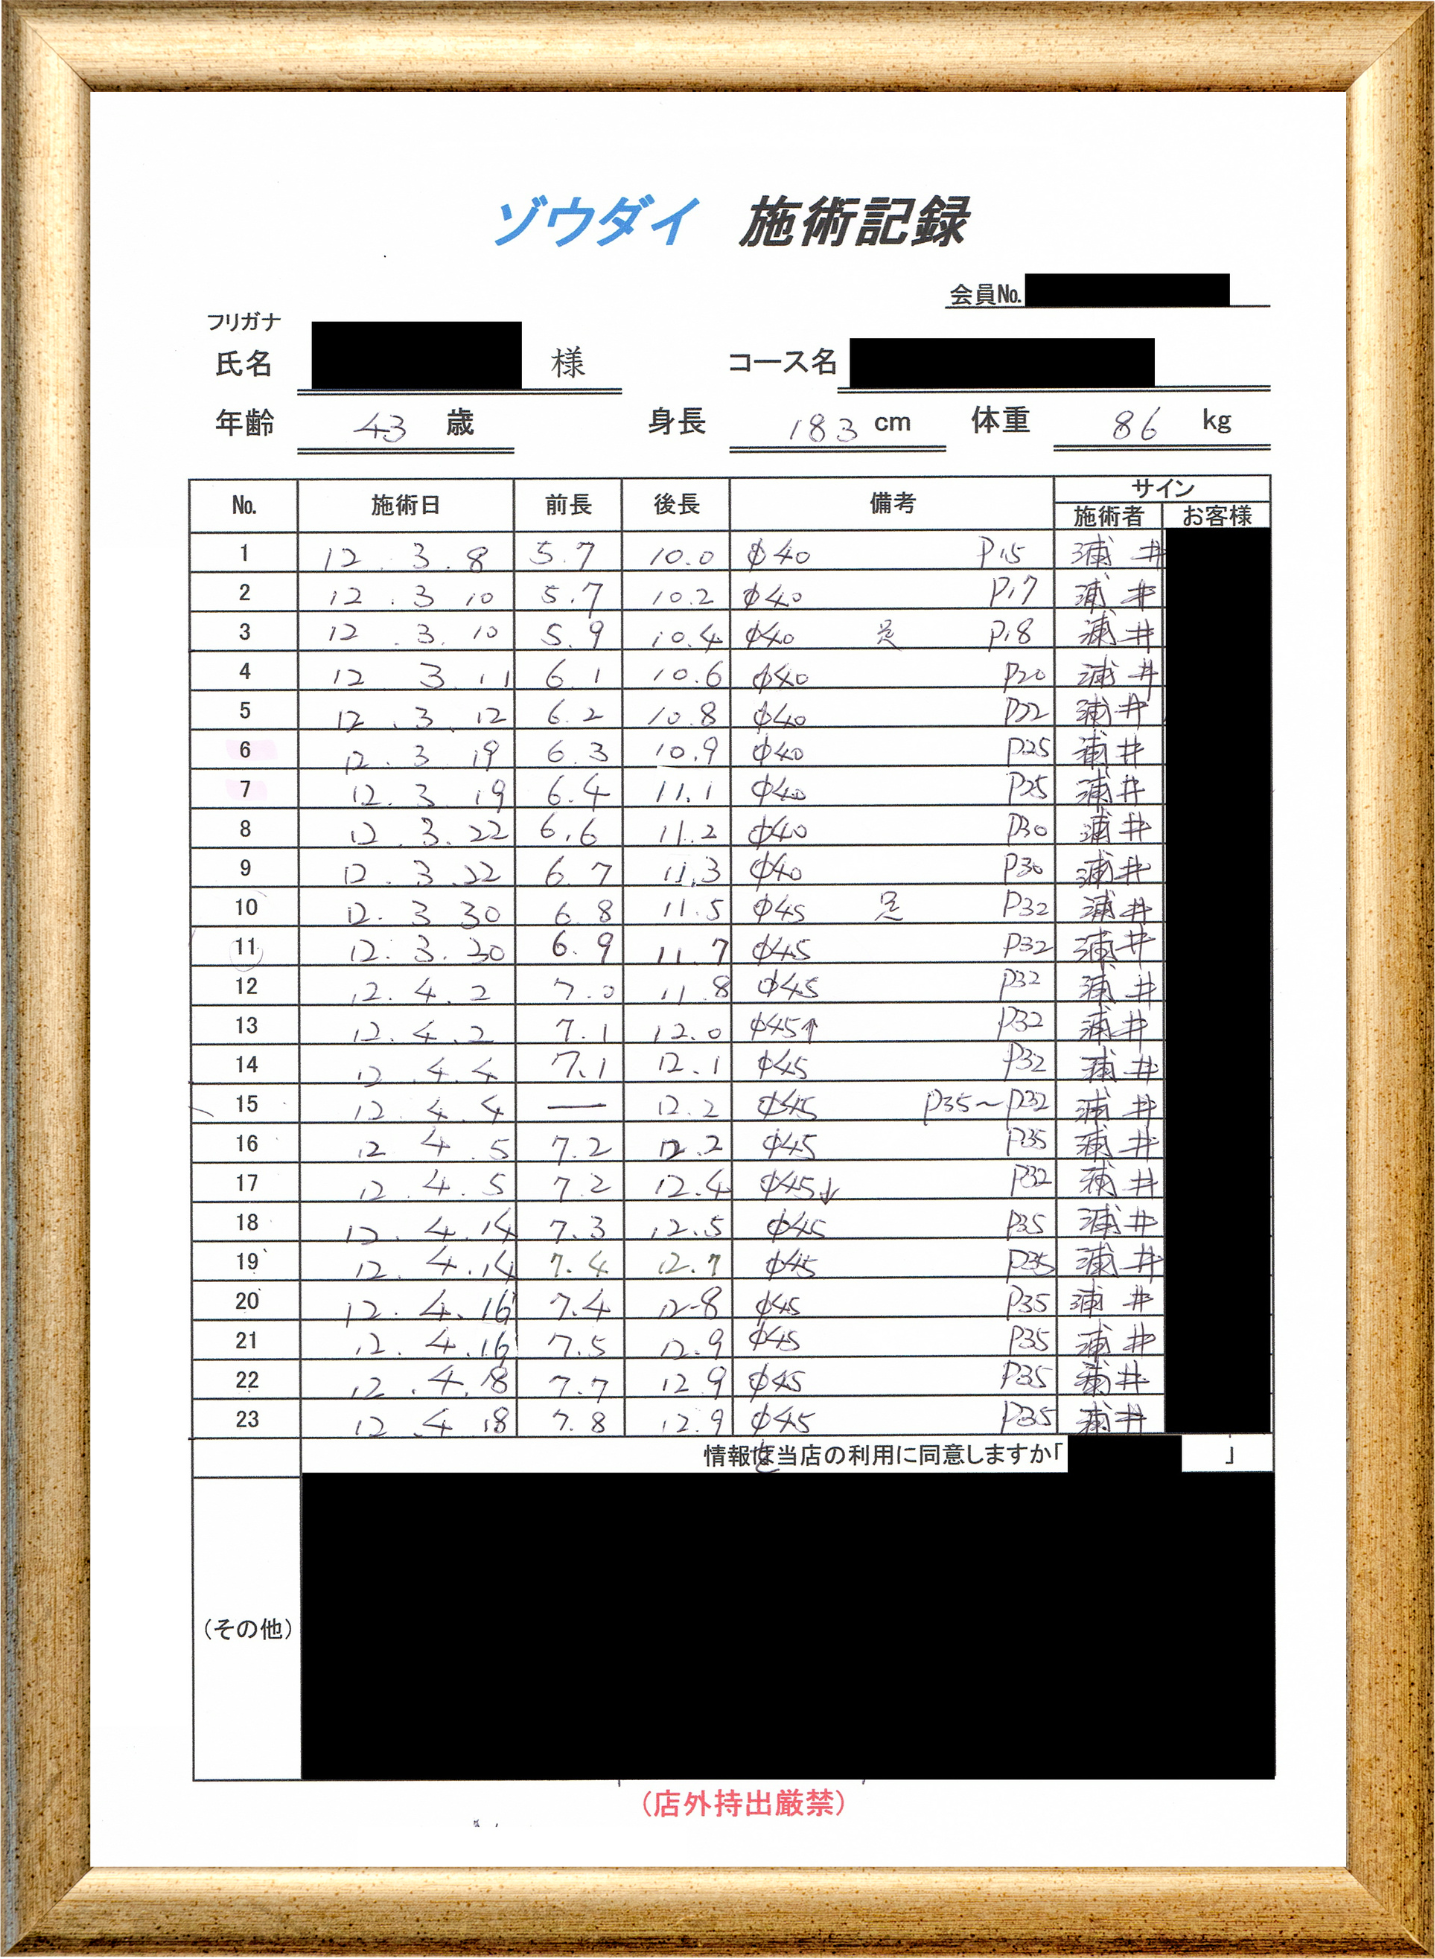 ゾウダイ 施術記録
会員No.
フリガナ
氏名 様 コース名
年齢 43 歳 身長 183 cm 体重 86 kg
No. 施術日 前長 後長 備考 サイン
施術者 お客様
1 12.3.8 5.7 10.0 φ40 P15 浦井
2 12.3 10 5.7 10.2 φ40 P17 浦井
3 12.3.10 5.9 10.4 φ40 足 P18 浦井
4 12 3.11 6.1 10.6 φ40 P20 浦井
5 12.3.12 6.2 10.8 φ40 P22 浦井
6 12.3 19 6.3 10.9 φ40 P25 浦井
7 12.3 19 6.4 11.1 φ40 P25 浦井
8 12.3.22 6.6 11.2 φ40 P30 浦井
9 12.3.22 6.7 11.3 φ40 P30 浦井
10 12.3 30 6.8 11.5 φ45 足 P32 浦井
11 12.3.30 6.9 11.7 φ45 P32 浦井
12 12.4.2 7.0 11.8 φ45 P32 浦井
13 12.4.2 7.1 12.0 φ45↑ P32 浦井
14 12.4.4 7.1 12.1 φ45 P32 浦井
15 12.4.4 — 12.2 φ45 P35~P32 浦井
16 12 4.5 7.2 12.2 φ45 P35 浦井
17 12.4.5 7.2 12.4 φ45↓ P32 浦井
18 12.4.14 7.3 12.5 φ45 P35 浦井
19 12.4.14 7.4 12.7 φ45 P35 浦井
20 12.4.16 7.4 12.8 φ45 P35 浦井
21 12.4.16 7.5 12.9 φ45 P35 浦井
22 12.4.18 7.7 12.9 φ45 P35 浦井
23 12.4 18 7.8 12.9 φ45 P35 浦井
情報を当店の利用に同意しますか「 」
(その他)
(店外持出厳禁)